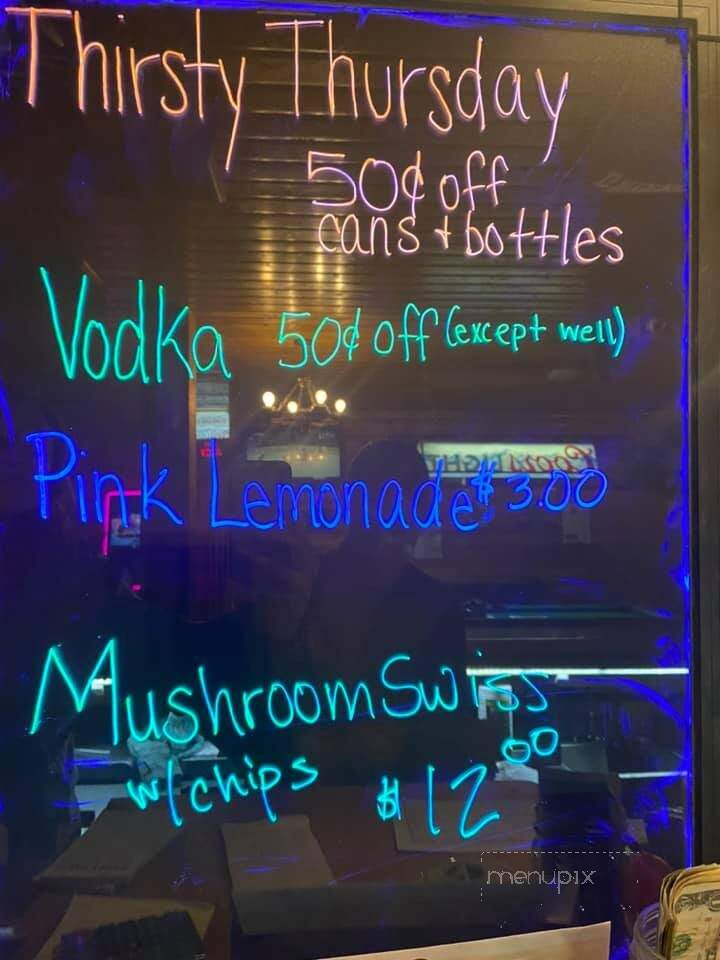 Thirsty Thursday
50¢ off
cans + bottles
Vodka 50¢ off (except well)
Coors LIGHT
Pink Lemonade $3.00
Mushroom Swiss
w/chips $12.00
menupix